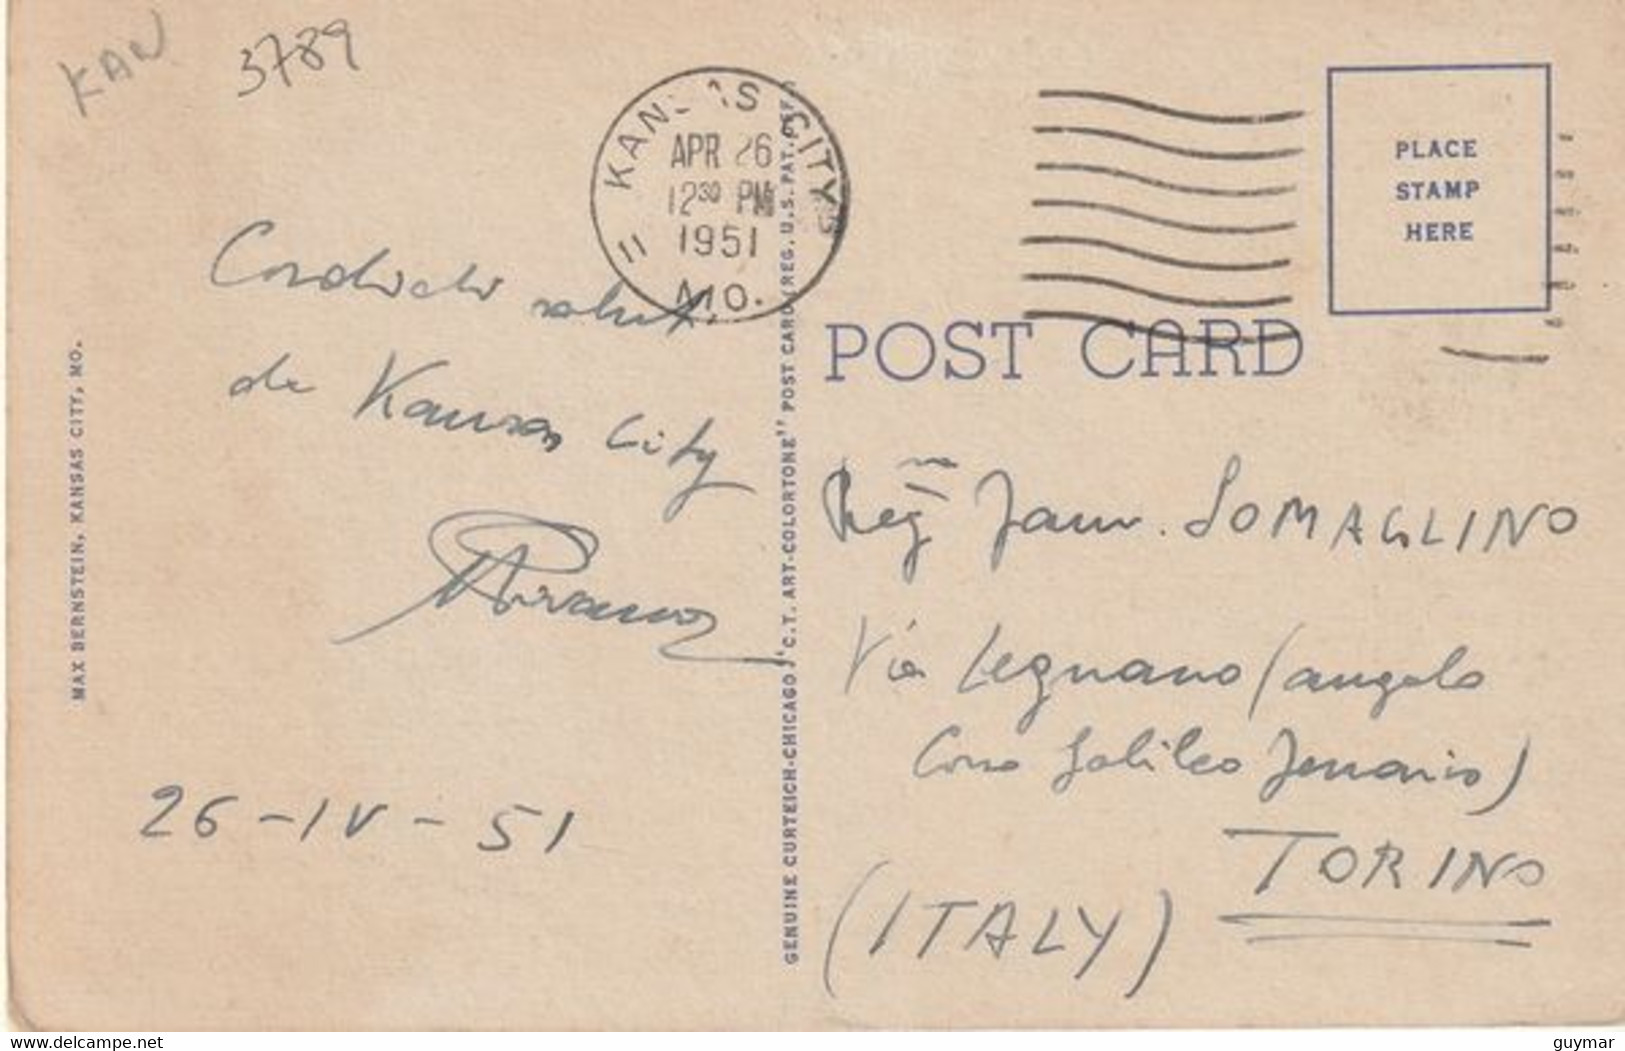 KAN
3789
KANSAS CITY
APR 26
12 30 PM
1951
MO.
11
Cordiali saluti
da Kansas City
26-IV-51
MAX BERNSTEIN, KANSAS CITY, MO.
GENUINE CURTEICH-CHICAGO "C.T. ART-COLORTONE" POST CARD (REG. U.S. PAT. OFF.)
PLACE
STAMP
HERE
POST CARD
SOMAGLINO
Via Legnano (angolo
Corso Galileo Ferraris)
TORINO
(ITALY)
guymar
www.delcampe.net